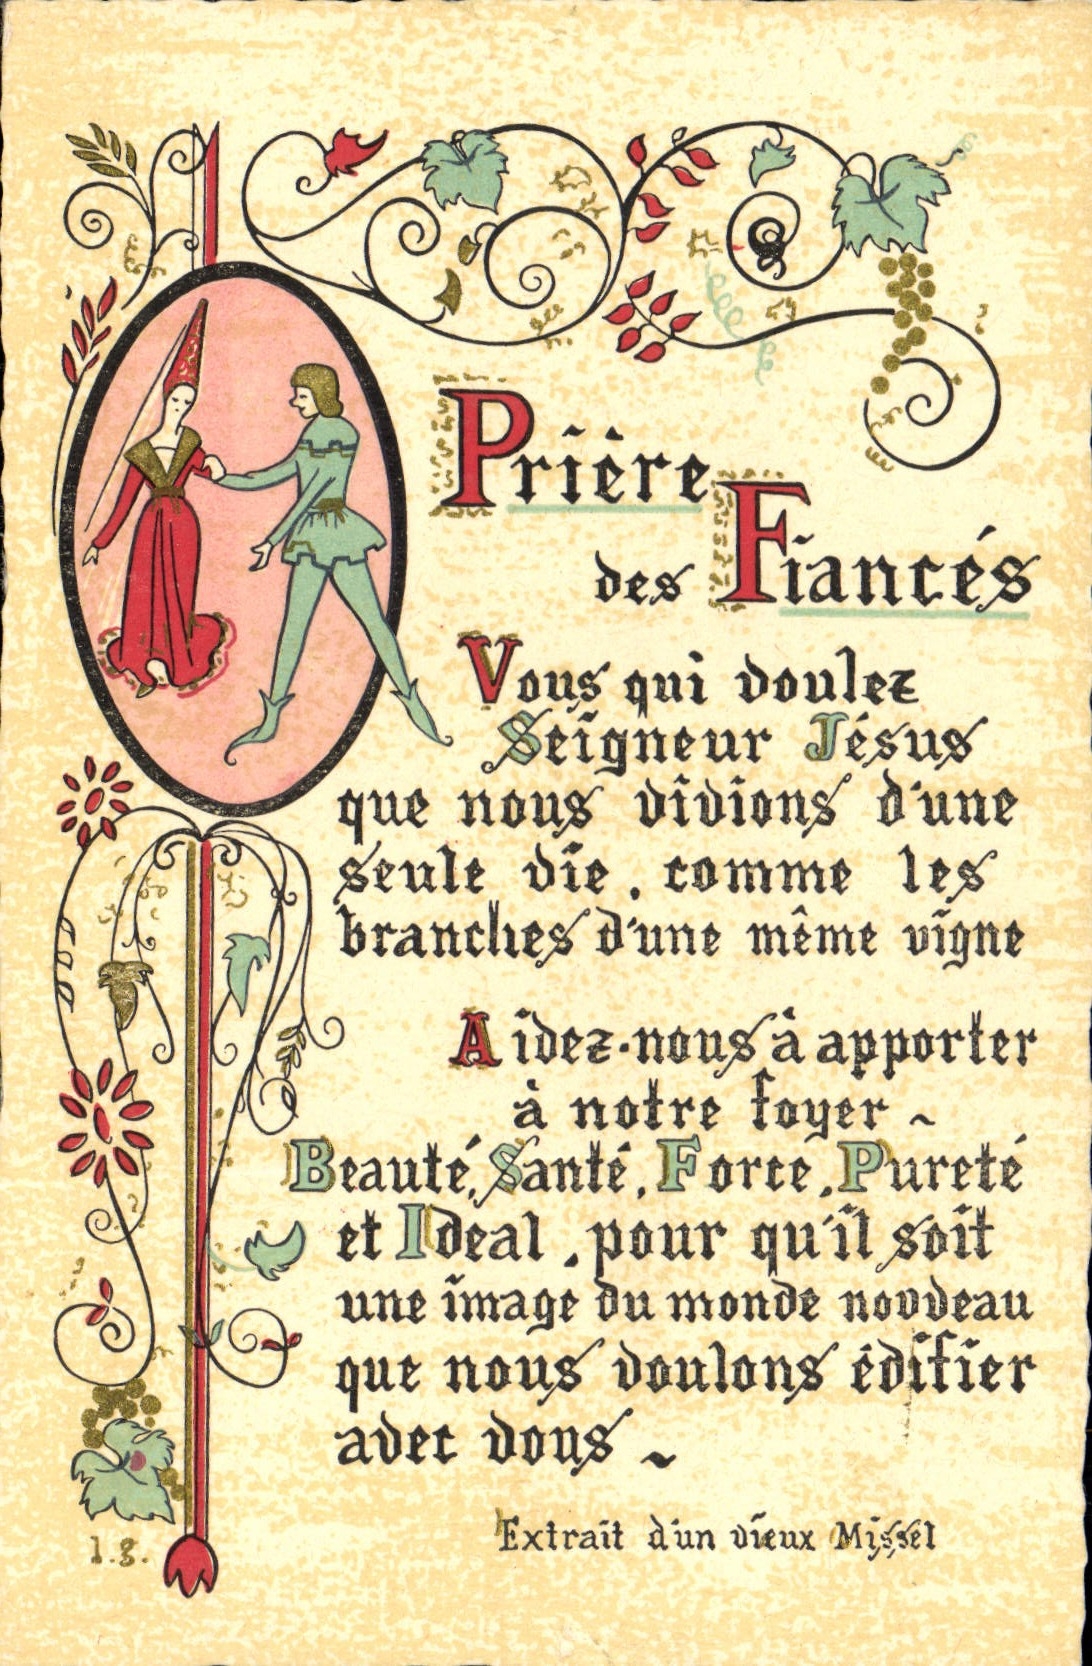 Prière
des Fiancés
Vous qui voulez
Seigneur Jésus
que nous vivions d'une
seule vie, comme les
branches d'une même vigne
Aidez-nous à apporter
à notre foyer ~
Beauté, Santé, Force, Pureté
et Ideal, pour qu'il soit
une image du monde nouveau
que nous voulons édifier
avec vous ~
Extrait d'un vieux Missel
l.g.